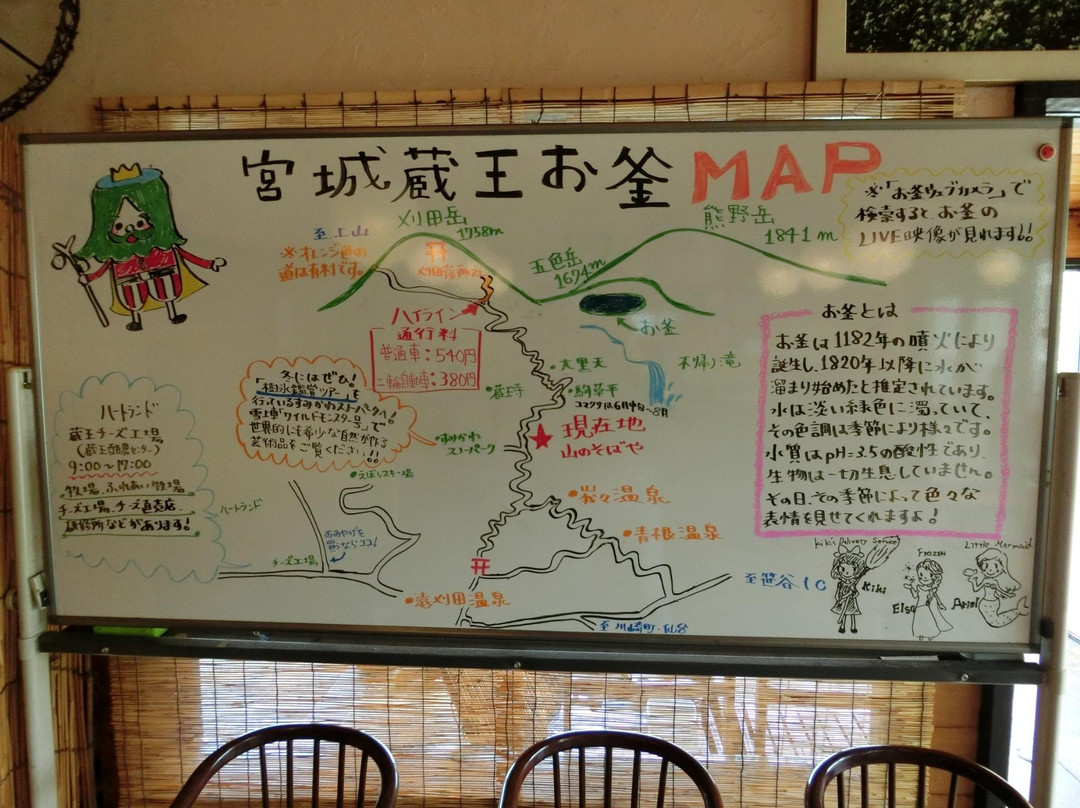 宮城蔵王お釜MAP
※「お釜ウェブカメラ」で
検索すると、お釜の
LIVE映像が見れます!!
至上山
※オレンジ色の
道は有料です。
刈田岳
1758m
五色岳
1674m
熊野岳
1841m
お釜
不帰ノ滝
ハイライン
通行料
普通車:540円
二輪自動車:380円
大黒天
駒草平
コマクサは6月中旬~8月
蔵王寺
現在地
山のそばや
冬にはぜひ!
「樹氷鑑賞ツアー」を
行っているすみかわスノーパークへ!
雪上車「ワイルドモンスター号」で
世界的にも希少な自然が作る
芸術品をご覧ください!!
すみかわ
スノーパーク
えぼしスキー場
ハートランド
蔵王チーズ工場
(蔵王酪農センター)
9:00~17:00
牧場、ふれあい牧場
チーズ工場、チーズ直売店、
などがあります!
ハートランド
おみやげを
買うならココ!
チーズ工場
峩々温泉
青根温泉
遠刈田温泉
至笹谷IC
至川崎町・仙台
お釜とは
お釜は1182年の噴火により
誕生し、1820年以降に水が
溜まり始めたと推定されています。
水は淡い緑色に濁っていて、
その色調は季節により様々です。
水質はpH=3.5の酸性であり、
生物は一切生息していません。
その日、その季節によって色々な
表情を見せてくれますよ!
Kiki's Delivery Service
Kiki
FROZEN
Elsa
Little Mermaid
Ariel